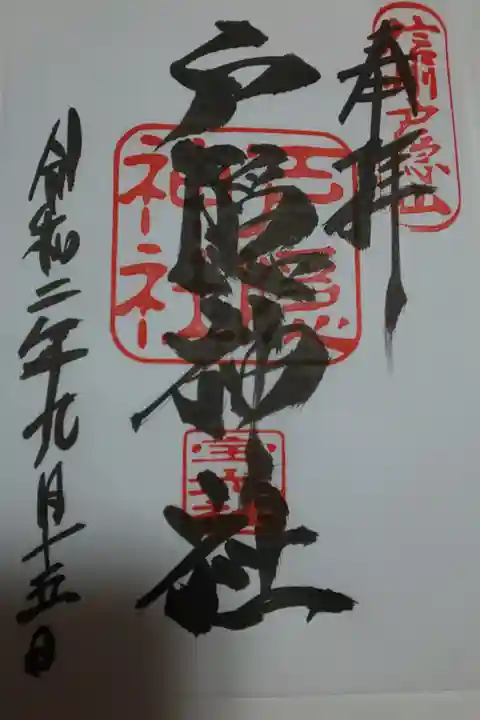 奉拝
信州戸隠山
戸隠神社
戸隠神社
令和二年九月十五日